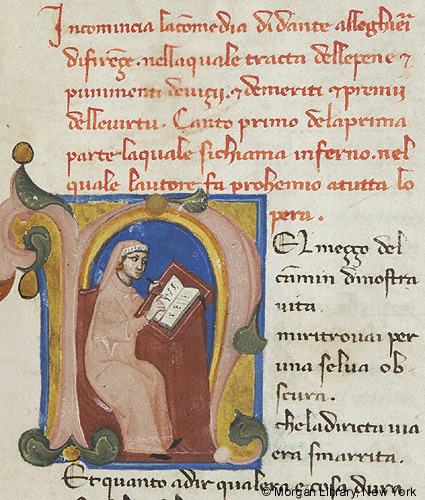 Incomincia la comedia di dante alleghieri
di firençe. nella quale tracta delle pene ⁊
punimenti de uiçii. ⁊ de meriti ⁊ premii
delle uirtu. Canto primo de la prima
parte la quale si chiama inferno. nel
quale lautore fa prohemio a tutta lo
pera.
NEl meççо del
camin di nostra
uita.
mi ritrouai per
una selua ob
scura.
che la diricta uia
era smarrita.
Et quanto a dir qual era e cosa dura
© Morgan Library, New York